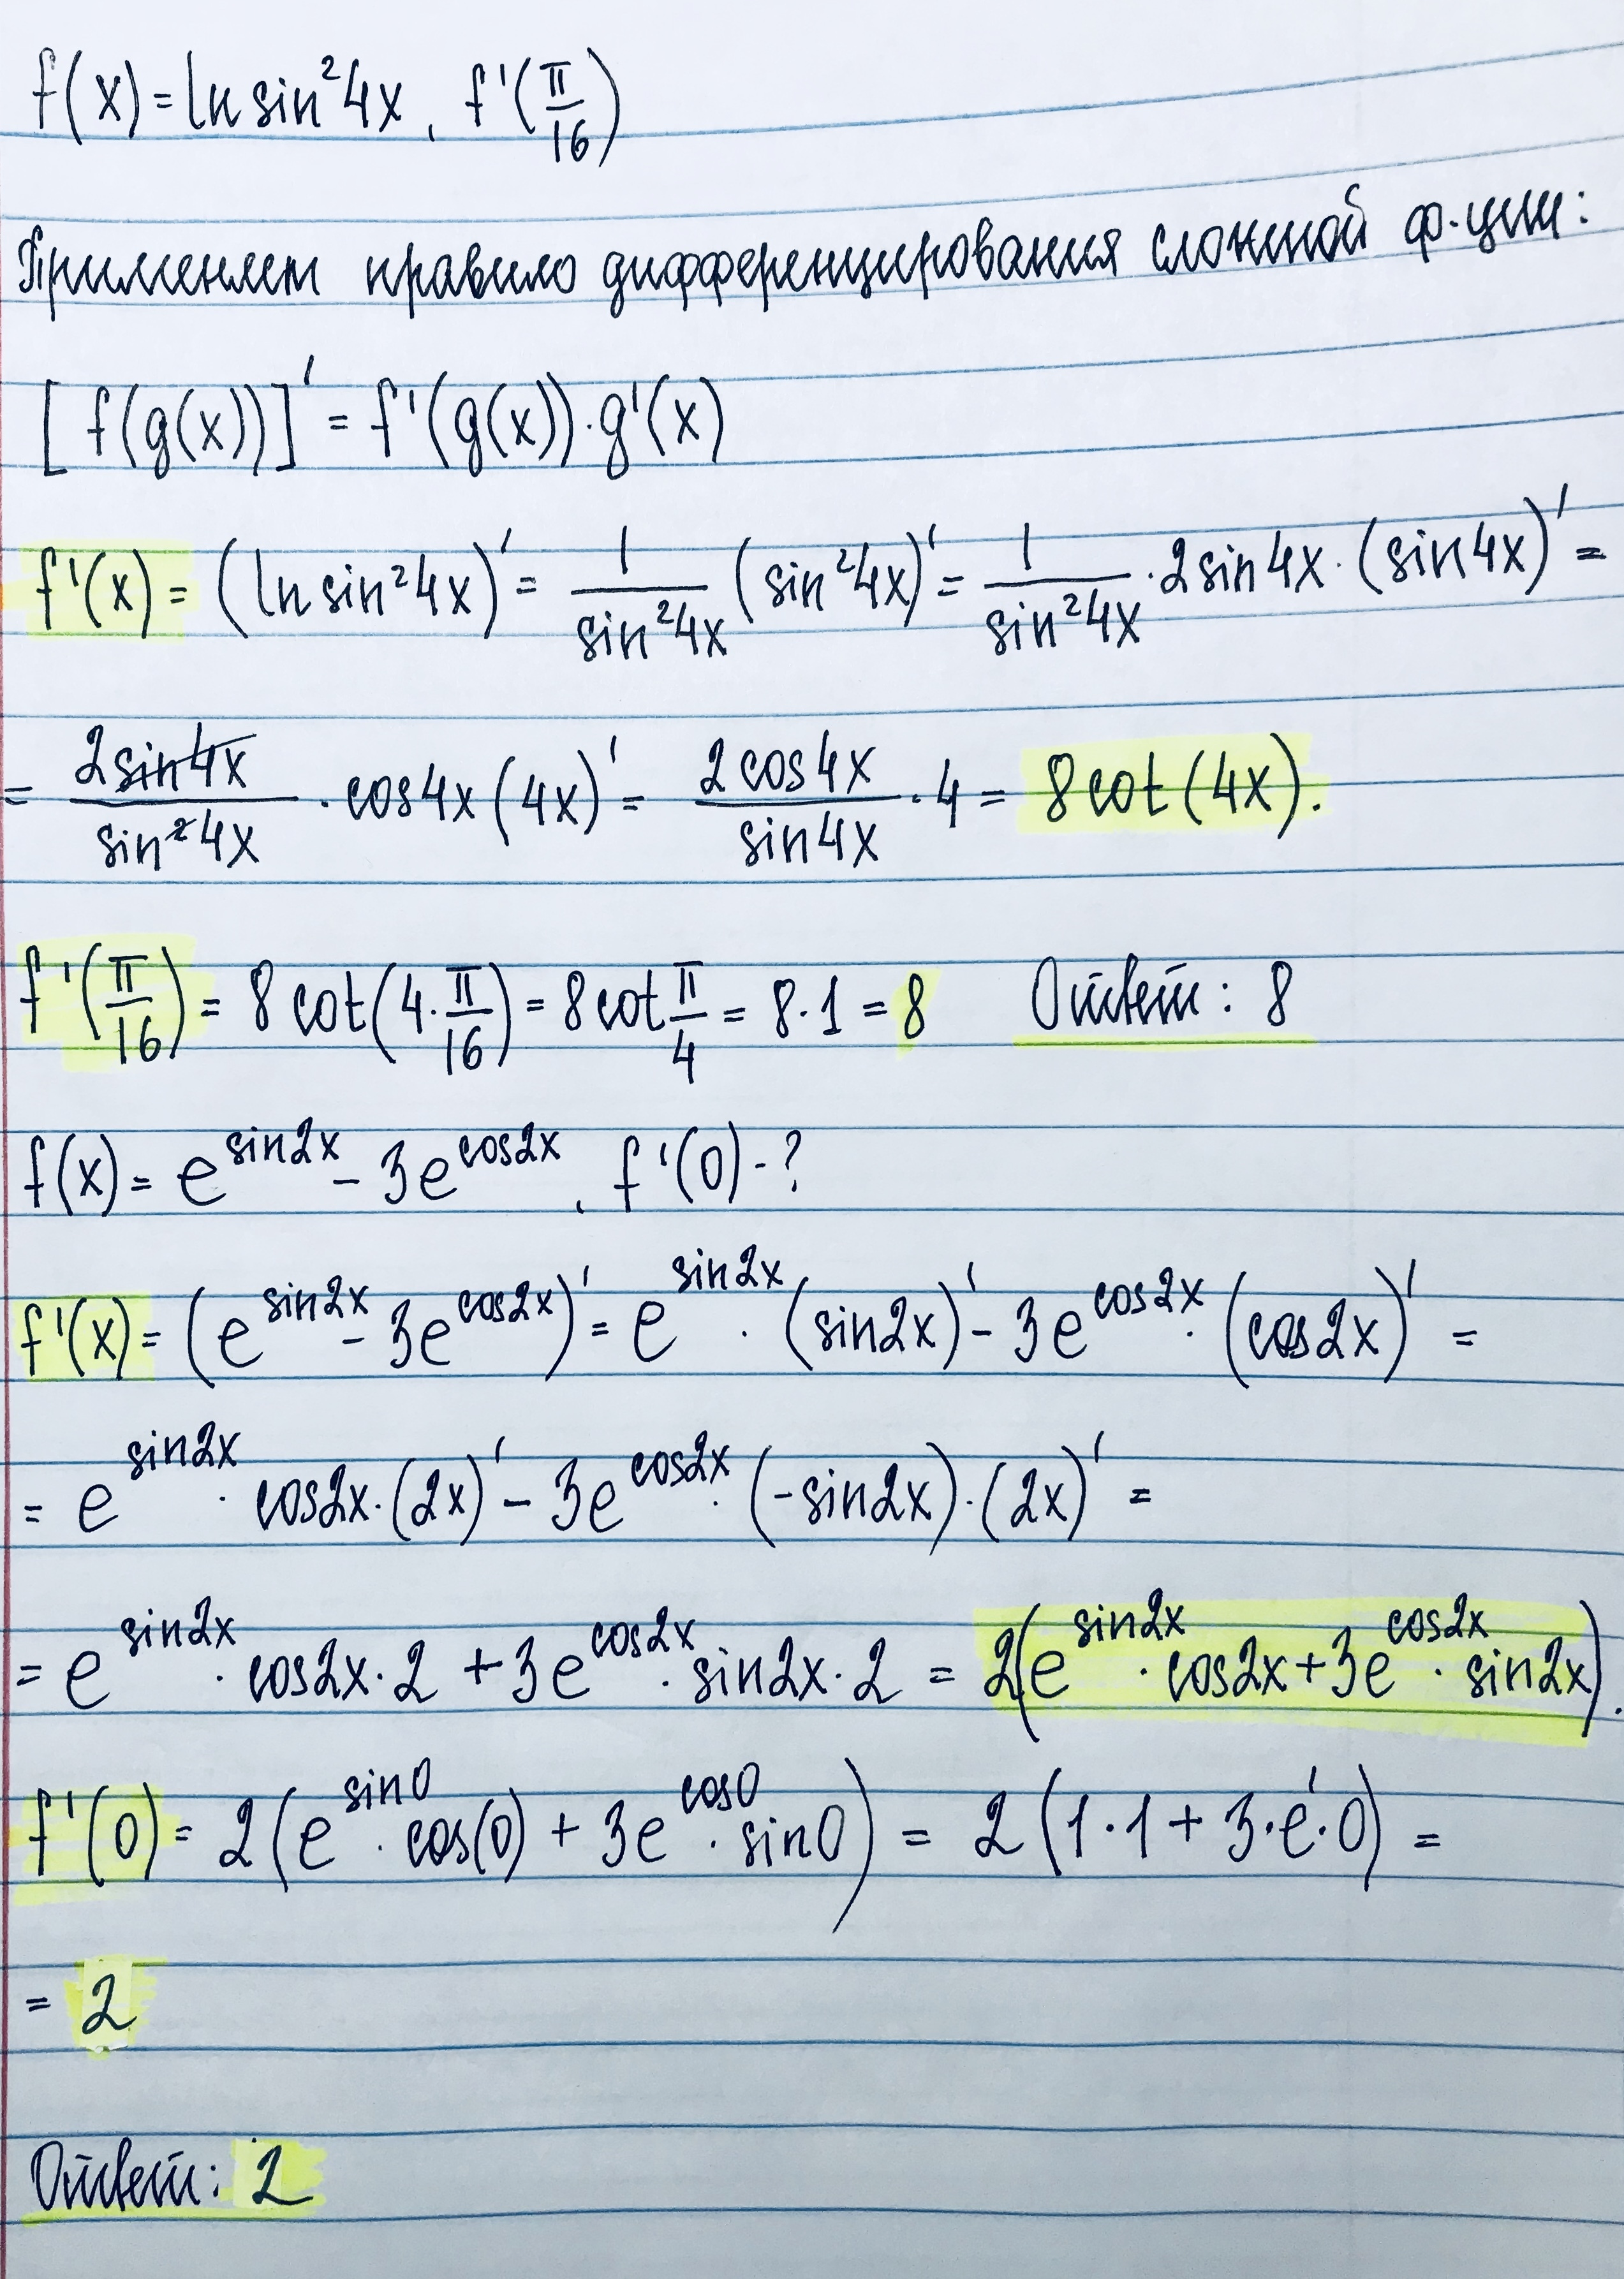 f(x) = ln sin²4x, f'(π/16)
Применяем правило дифференцирования сложной ф-ции:
[f(g(x))]' = f'(g(x))·g'(x)
f'(x) = (ln sin²4x)' = 1/sin²4x (sin²4x)' = 1/sin²4x · 2sin4x · (sin4x)' =
= 2sin4x/sin²4x · cos4x (4x)' = 2cos4x/sin4x · 4 = 8cot(4x).
f'(π/16) = 8cot(4·π/16) = 8cot π/4 = 8·1 = 8 Ответ: 8
f(x) = e^sin2x - 3e^cos2x, f'(0) - ?
f'(x) = (e^sin2x - 3e^cos2x)' = e^sin2x · (sin2x)' - 3e^cos2x · (cos2x)' =
= e^sin2x · cos2x · (2x)' - 3e^cos2x · (-sin2x) · (2x)' =
= e^sin2x · cos2x · 2 + 3e^cos2x · sin2x · 2 = 2(e^sin2x · cos2x + 3e^cos2x · sin2x).
f'(0) = 2(e^sin0 · cos(0) + 3e^cos0 · sin0) = 2(1·1 + 3·e¹·0) =
= 2
Ответ: 2